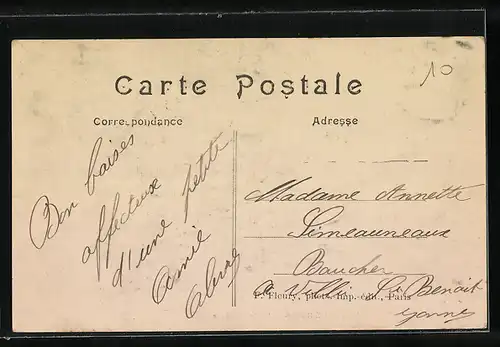 10
Carte Postale
Correspondance
Adresse
Bon baises
affectueux
d'une petite
Amie
Madame Annette
Simeauneaux
Baucher
a Villi St Benoit
Yonne
P. Fleury, phot. imp. édit., Paris